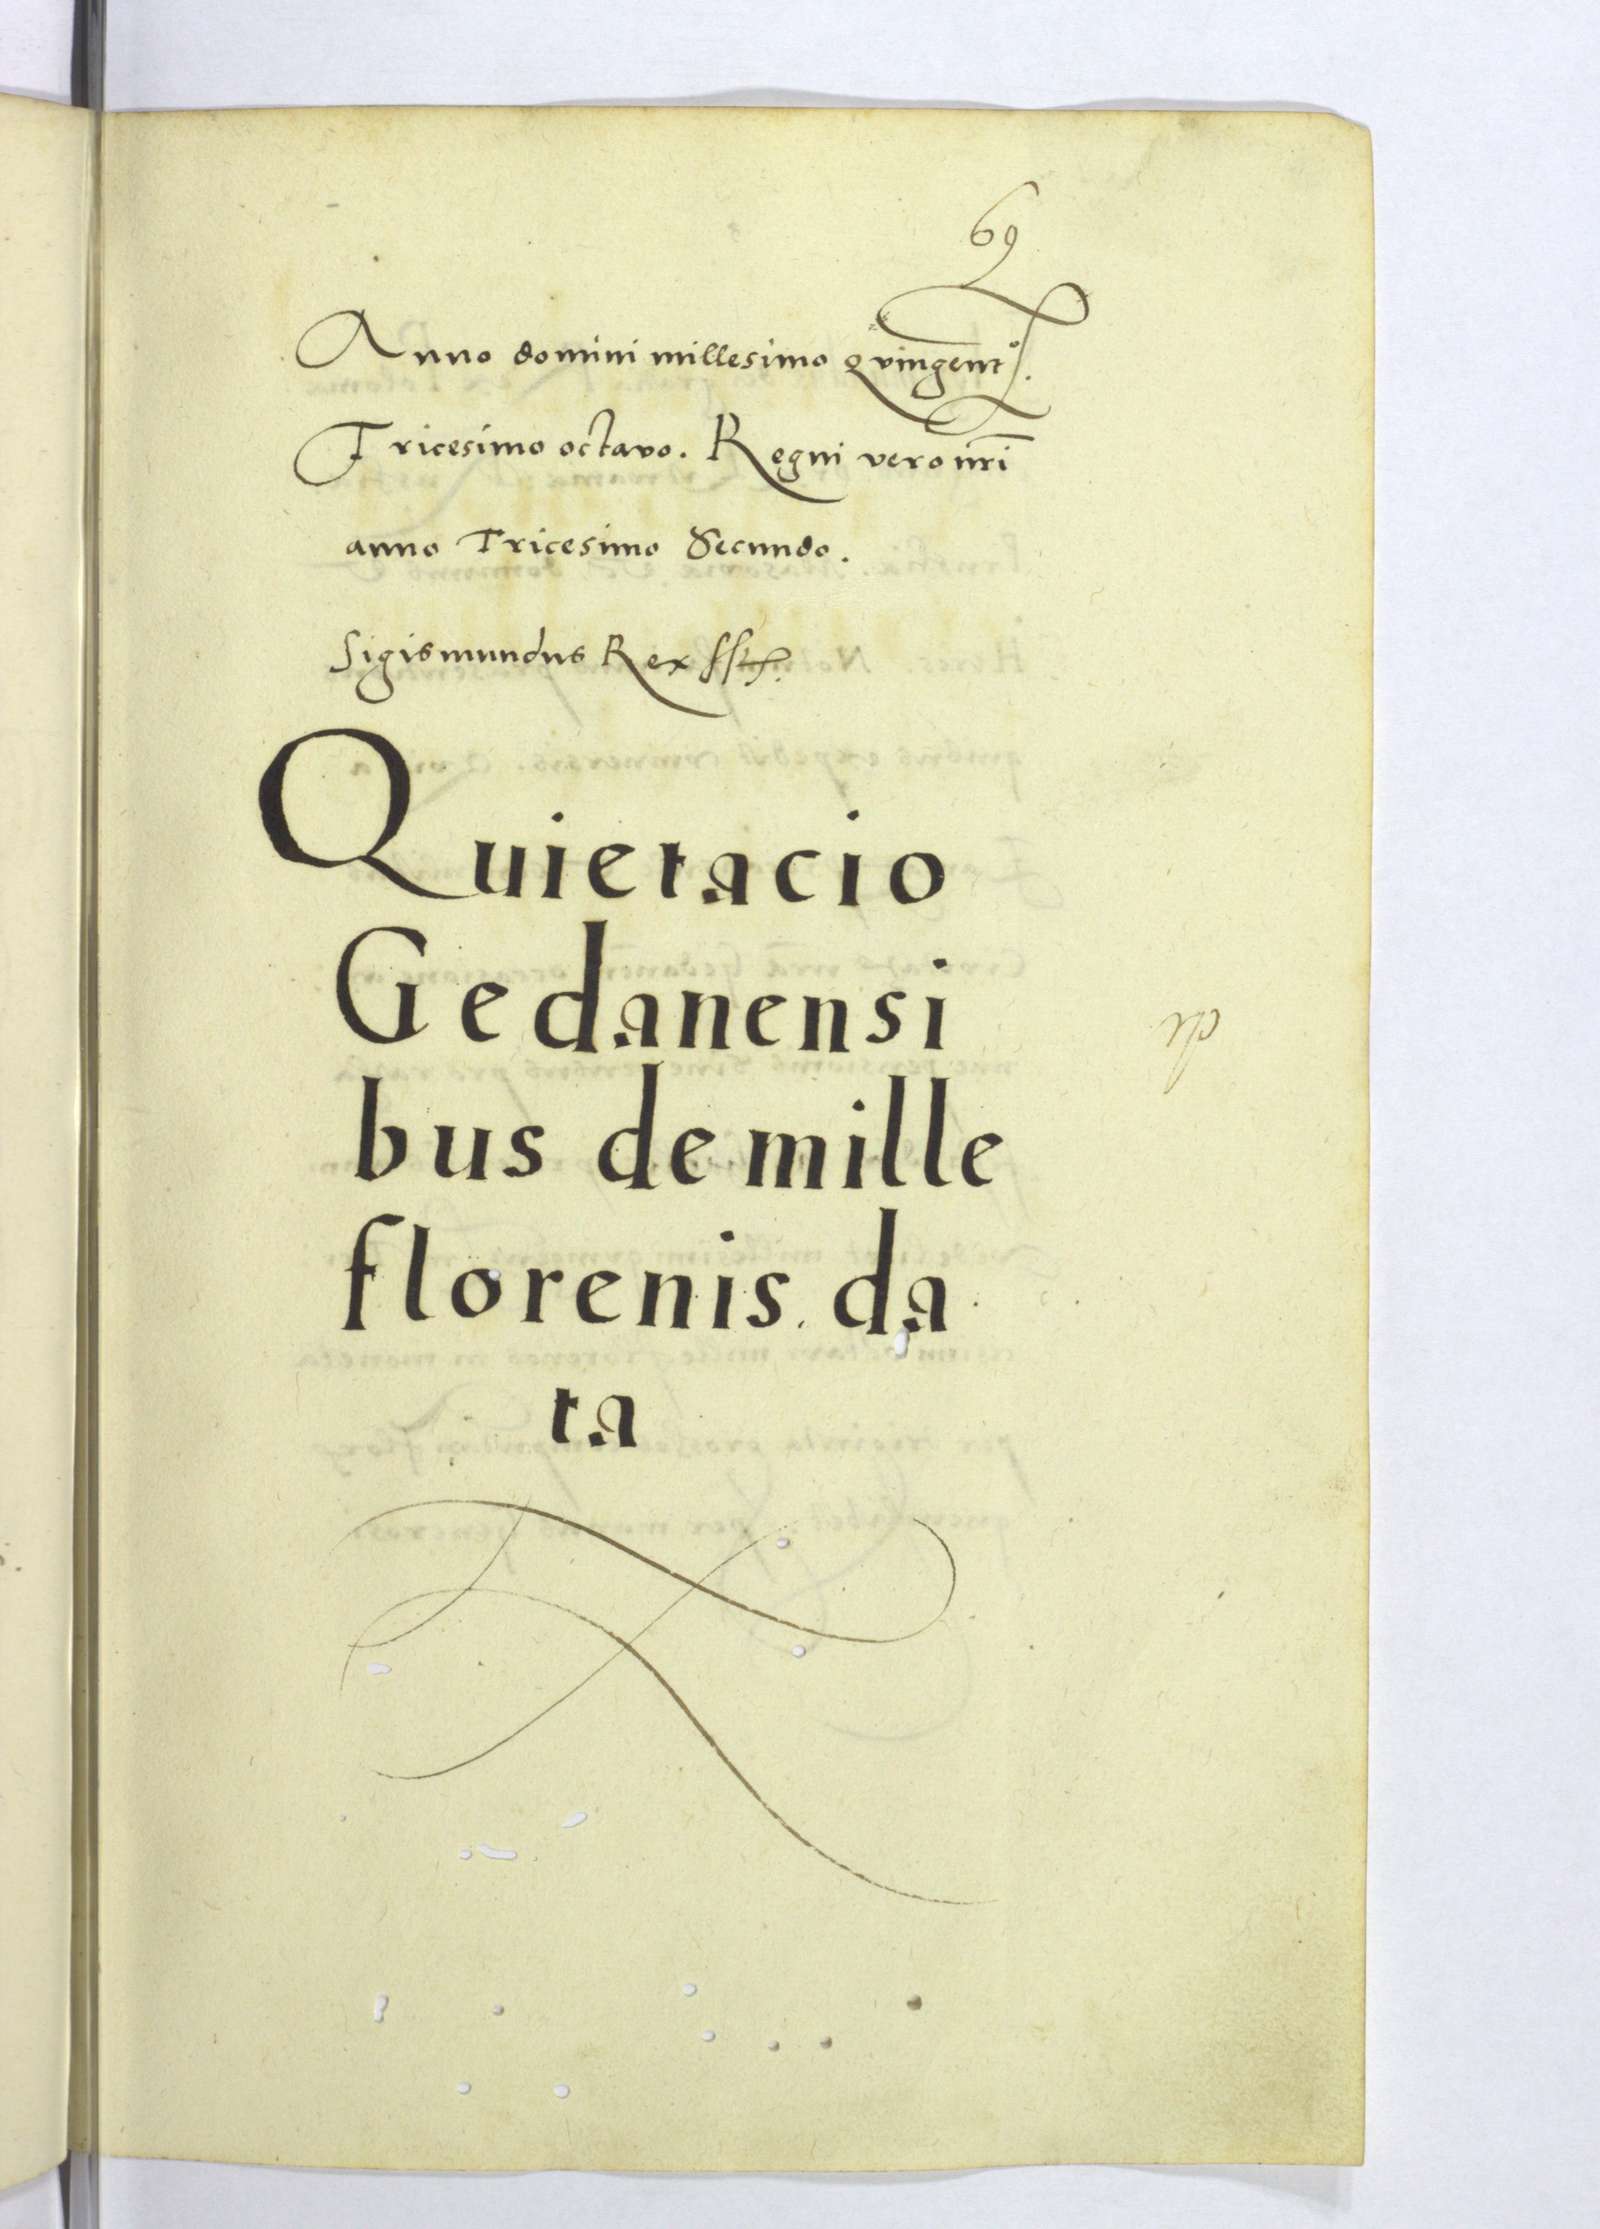 69
Anno domini millesimo qvingentº.
Tricesimo octavo. Regni vero nr̄i
anno Tricesimo Secundo.
Sigismundus Rex sst.
Quietacio
Gedanensi
bus de mille
florenis da
ta